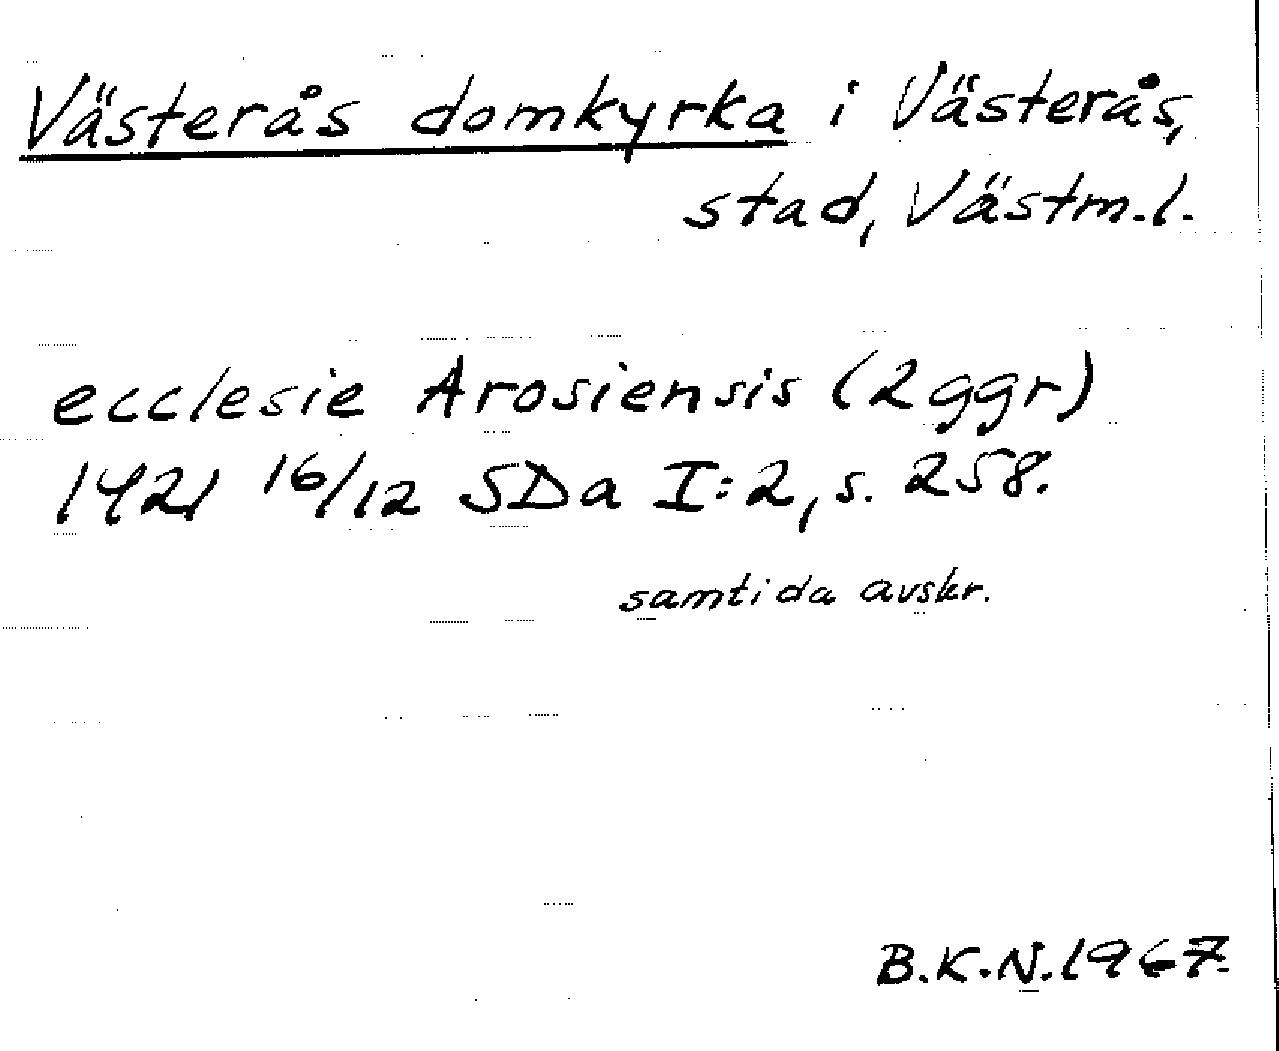 Västerås domkyrka i Västerås,
stad, Västm.l.
ecclesie Arosiensis (2 ggr)
1421 16/12 SDa I:2, s. 258.
samtida avskr.
B.K.N. 1967